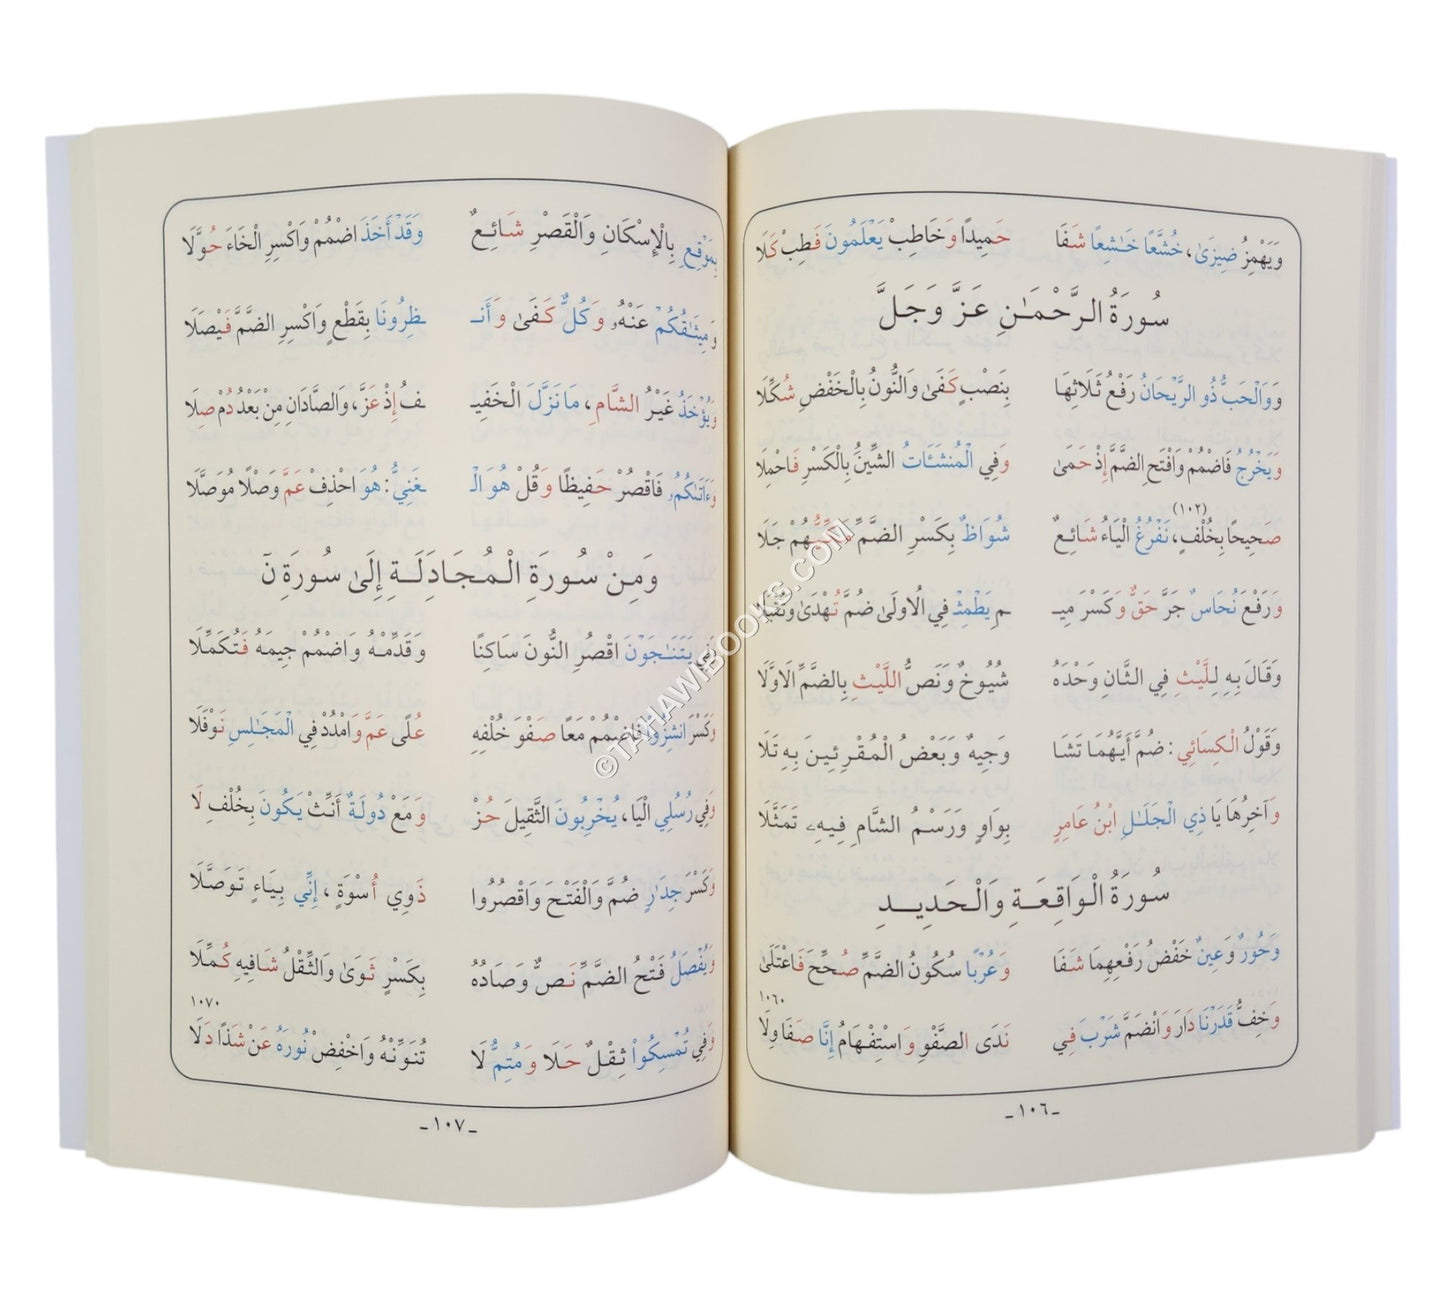 وَيَهْمِزُ ضِيزَىٰ، خُشَّعًا خَـٰشِعًا شَفَا حَمِيدًا وَخَاطِبْ يَعْلَمُونَ فَطِبْ كَلَا
سُورَةُ الرَّحْمَـٰنِ عَزَّ وَجَلَّ
وَوَالْحَبُّ ذُو الرَّيْحَانُ رَفْعُ ثَلَاثِهَا بِنَصْبٍ كَفَىٰ وَالنُّونُ بِالْخَفْضِ شُكِّلَا
وَيَخْرُجُ فَاضْمُمْ وَافْتَحِ الضَّمَّ إِذْ حَمَىٰ وَفِي الْمُنشَـَٔاتُ الشِّينُ بِالْكَسْرِ فَاحْمِلَا
(١٠٢)
صَحِيحًا بِخُلْفٍ، نَفْرُغُ الْيَاءُ شَائِعٌ شُوَاظٌ بِكَسْرِ الضَّمِّ مَكِّيُّهُمْ جَلَا
وَرَفْعَ نُحَاسٌ جَرَّ حَقٌّ وَكَسْرَ مِيـ ـمِ يَطْمِثْ فِي الْاولَىٰ ضُمَّ تُهْدَىٰ وَتُقْبَلَا
وَقَالَ بِهِ لِـلَّيْثِ فِي الثَّانِ وَحْدَهُ شُيُوخٌ وَنَصُّ اللَّيْثِ بِالضَّمِّ الَاوَّلَا
وَقَوْلُ الْكِسَائِي: ضُمَّ أَيَّهُمَا تَشَا وَجِيهٌ وَبَعْضُ الْمُقْرِئِينَ بِهِ تَلَا
وَآخِرُهَا يَا ذِي الْجَلَـٰلِ ابْنُ عَامِرٍ بِوَاوٍ وَرَسْمُ الشَّامِ فِيهِ تَمَثَّلَا
سُورَةُ الْوَاقِعَةِ وَالْحَدِيـدِ
وَحُورٌ وَعِينٌ خَفْضُ رَفْعِهِمَا شَفَا وَعُرْبًا سُكُونُ الضَّمِّ صُحِّحَ فَاعْتَلَىٰ
١٠٦٠
وَخِفُّ قَدَرْنَا دَارَ وَانْضَمَّ شَرْبَ فِي نَدَى الصَّفْوِ وَاسْتِفْهَامُ إِنَّا صَفَا وِلَا
ـ ١٠٦ ـ
بِمَوْقِعِ بِالْإِسْكَانِ وَالْقَصْرِ شَائِعٌ وَقَدْ أَخَذَ اضْمُمْ وَاكْسِرِ الْخَاءَ حُوَّلَا
وَمِيثَـٰقُكُمْ عَنْهُ، وَكُلٌّ كَفَىٰ وَأَنـ ـظِرُونَا بِقَطْعٍ وَاكْسِرِ الضَّمَّ فَيْصَلَا
وَيُؤْخَذُ غَيْرُ الشَّامِ، مَا نَزَّلَ الْخَفِيـ ـفُ إِذْ عَزَّ، وَالصَّادَانِ مِنْ بَعْدُ دُمْ صِلَا
وَءَاتَىٰكُمُ، فَاقْصُرْ حَفِيظًا وَقُلْ هُوَ الْـ ـغَنِيُّ: هُوَ احْذِفْ عَمَّ وَصْلًا مُوَصَّلَا
وَمِنْ سُورَةِ الْمُجَادِلَةِ إِلَىٰ سُورَةِ نٓ
وَفِي يَتَنَـٰجَوْنَ اقْصُرِ النُّونَ سَاكِنًا وَقَدِّمْهُ وَاضْمُمْ جِيمَهُ فَتُكَمِّلَا
وَكَسْرَ انشِزُوا فَاضْمُمْ مَعًا صَفْوَ خُلْفِهِ عُلًى عَمَّ وَامْدُدْ فِي الْمَجَـٰلِسِ نَوْفَلَا
وَفِي رُسُلِي الْيَا، يُخْرِبُونَ الثَّقِيلَ حُزْ وَمَعْ دُولَةٌ أَنِّثْ يَكُونَ بِخُلْفِ لَا
وَكَسْرَ جِدَارٍ ضُمَّ وَالْفَتْحَ وَاقْصُرُوا ذَوِي أُسْوَةٍ، إِنِّي بِيَاءٍ تَوَصَّلَا
وَيُفْصَلُ فَتْحُ الضَّمِّ نَصٌّ وَصَادُهُ بِكَسْرٍ ثَوَىٰ وَالثِّقْلُ شَافِيهِ كُمِّلَا
١٠٧٠
وَفِي تُمْسِكُوا ثِقْلٌ حَلَا وَمُتِمُّ لَا تُنَوِّنْهُ وَاخْفِضْ نُورَهُ عَنْ شَذًا دَلَا
ـ ١٠٧ ـ
©TAHAWIBOOKS.COM